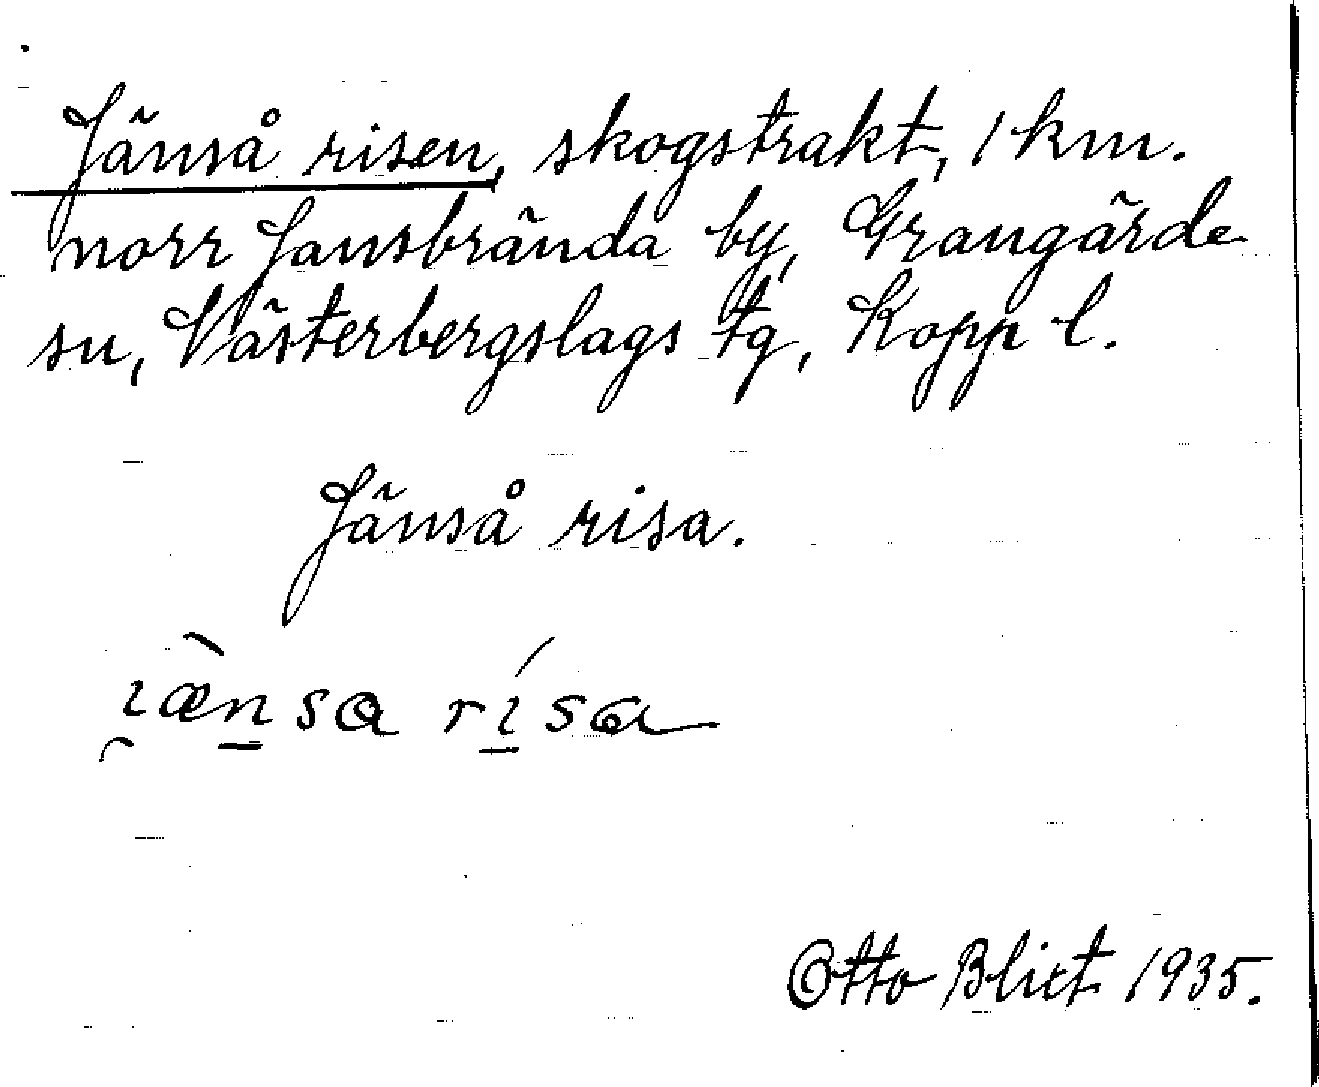 Jänså risen, skogstrakt, 1 km.
norr Jansbrända by, Grangärde
sn, Västerbergslags tg, Kopp l.
Jänså risa.
i̯æ̀n̠sa rí̠sa
Otto Blixt 1935.